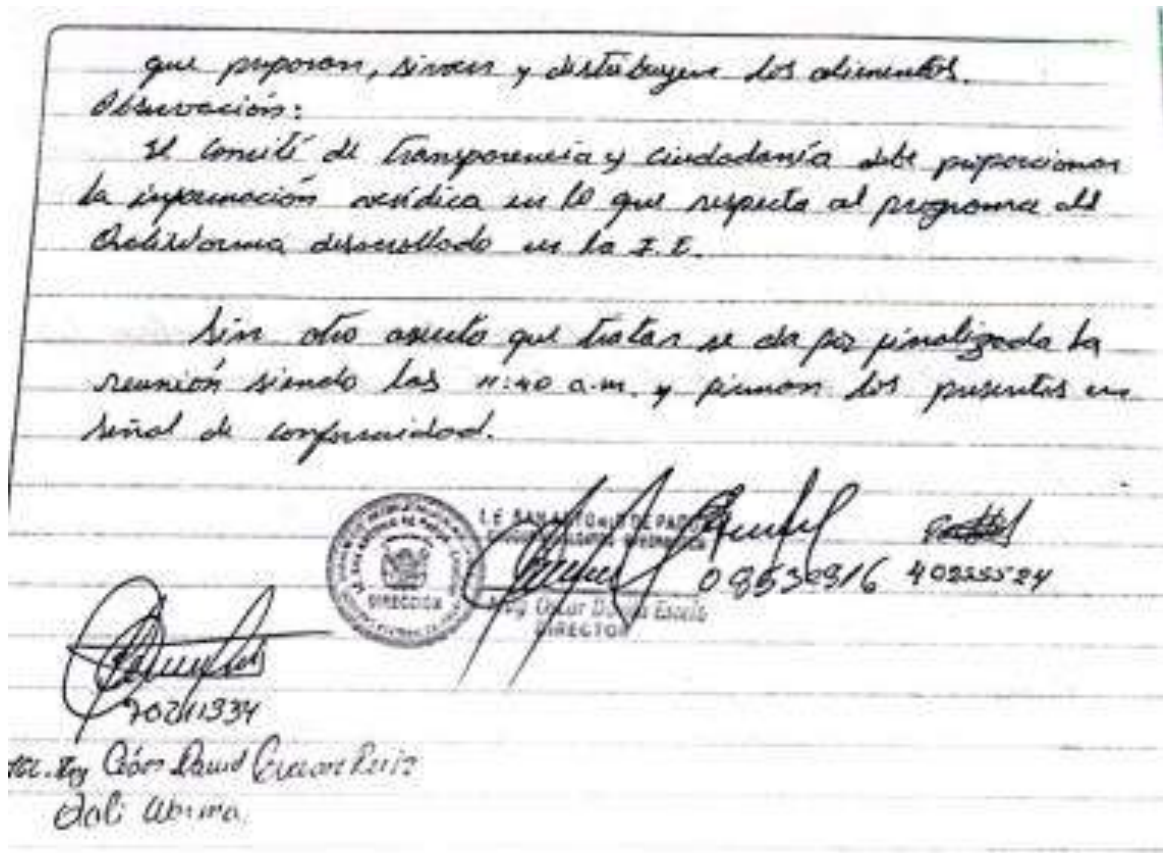 que preparan, sirven y distribuyen los alimentos.
Observación:
El comité de transparencia y ciudadanía debe proporcionar
la información verídica en lo que respecta al programa del
Qaliwarma desarrollado en la I.E.
Sin otro asunto que tratar se da por finalizada la
reunión siendo las 11:40 a.m. y firman los presentes en
señal de conformidad.
I.E. SAN ANTONIO DE PADUA
DIRECCIÓN
Mag. Oscar
DIRECTOR
08532816 40255524
70211334
David Ruiz
Qali Warma